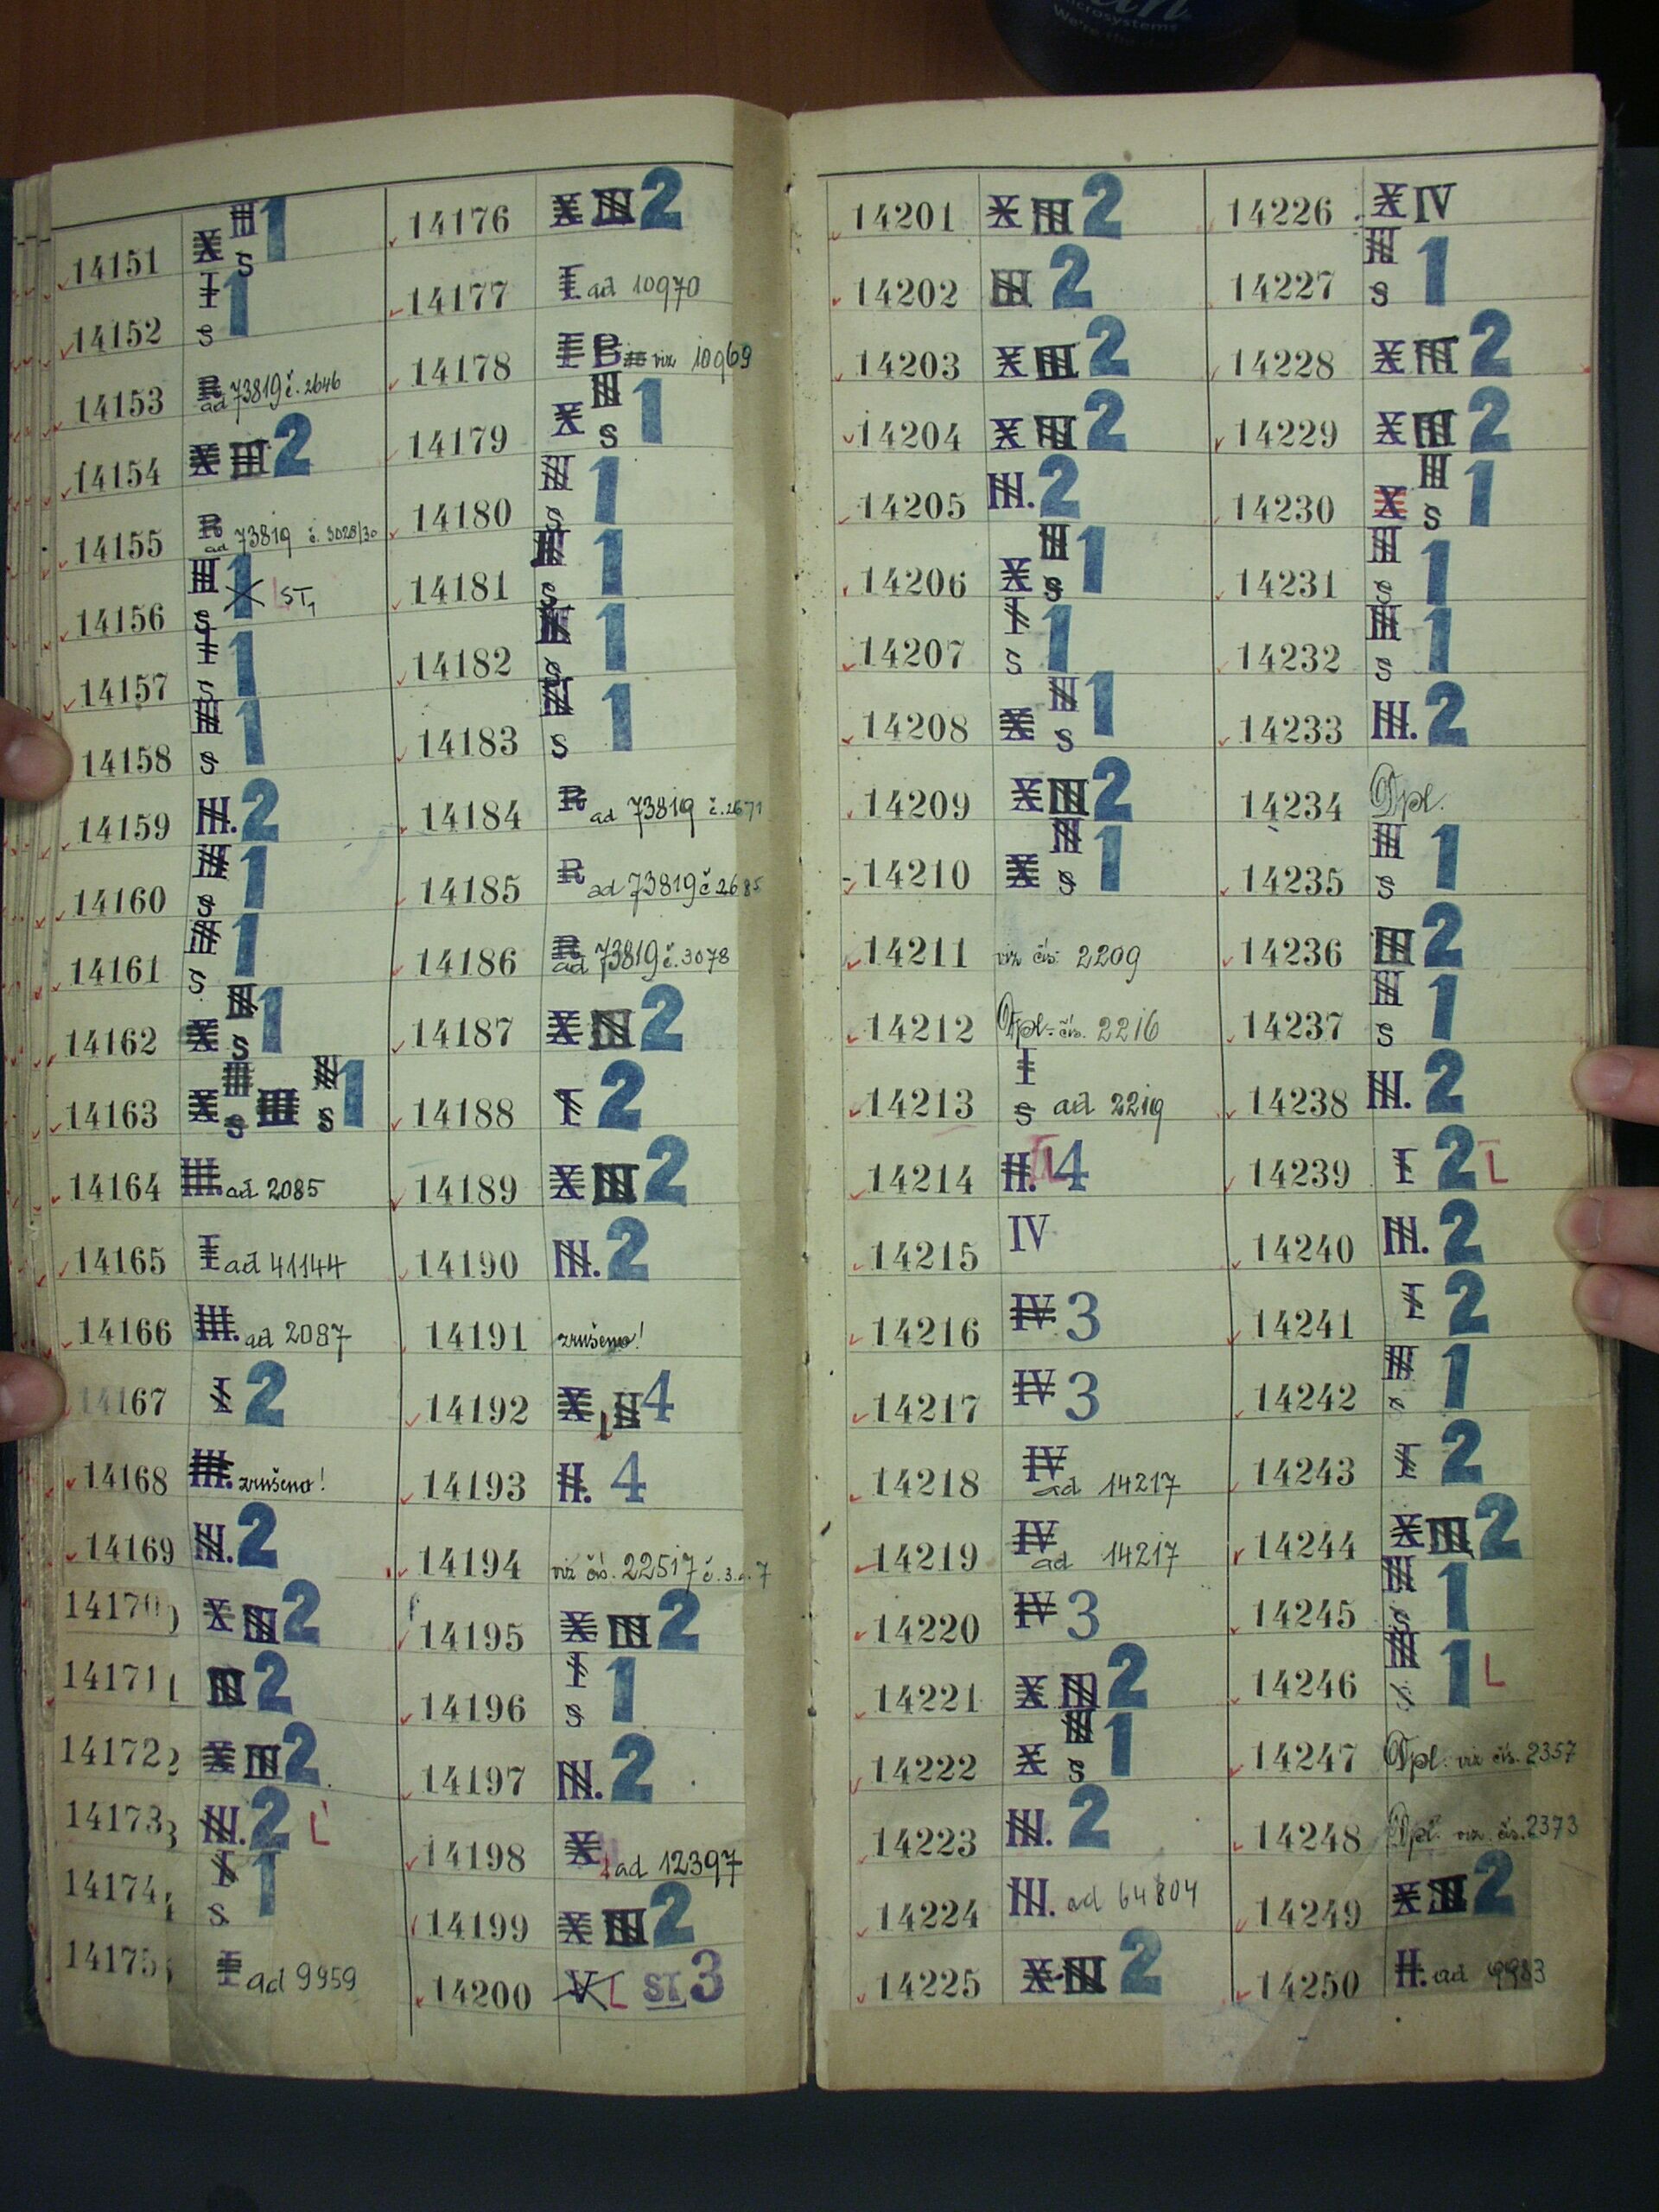 microsystems
14151 X III S 1
14152 I S 1
14153 R ad 73819 č. 2646
14154 X III 2
14155 R ad 73819 č. 3028/30
14156 III S 1 X L ST1
14157 I S 1
14158 III S 1
14159 III. 2
14160 III S 1
14161 III S 1
14162 X III S 1
14163 X III S III III S 1
14164 III. ad 2085
14165 I ad 41144
14166 III. ad 2087
14167 I 2
14168 III. zrušeno!
14169 III. 2
14170 X III 2
14171 III 2
14172 X III 2
14173 III. 2 L
14174 I S 1
14175 I ad 9959
14176 X III 2
14177 I ad 10970
14178 I B viz 10969
14179 X III S 1
14180 III S 1
14181 III S 1
14182 III S 1
14183 III S 1
14184 R ad 73819 č. 2671
14185 R ad 73819 č 2685
14186 R ad 73819 č. 3078
14187 X III 2
14188 I 2
14189 X III 2
14190 III. 2
14191 zrušeno!
14192 X L II 4
14193 II. 4
14194 viz čís. 22517 č. 3. a. 7
14195 X III 2
14196 I S 1
14197 III. 2
14198 X ad 12397
14199 X III 2
14200 V L ST. 3
14201 X III 2
14202 III 2
14203 X III 2
14204 X III 2
14205 III. 2
14206 X III S 1
14207 I S 1
14208 X III S 1
14209 X III 2
14210 X III S 1
14211 viz čís. 2209
14212 Dpl. čís. 2216
14213 I S ad 2219
14214 II. 4
14215 IV
14216 IV 3
14217 IV 3
14218 IV ad 14217
14219 IV ad 14217
14220 IV 3
14221 X III 2
14222 X III S 1
14223 III. 2
14224 III. ad 64804
14225 X III 2
14226 X IV
14227 III S 1
14228 X III 2
14229 X III 2
14230 X III S 1
14231 III S 1
14232 III S 1
14233 III. 2
14234 Dpl.
14235 III S 1
14236 III 2
14237 III S 1
14238 III. 2
14239 I 2 L
14240 III. 2
14241 I 2
14242 III S 1
14243 I 2
14244 X III 2
14245 III S 1
14246 III S 1 L
14247 Dpl. viz čís. 2357
14248 Dpl. viz čís. 2373
14249 X III 2
14250 II. ad 9983